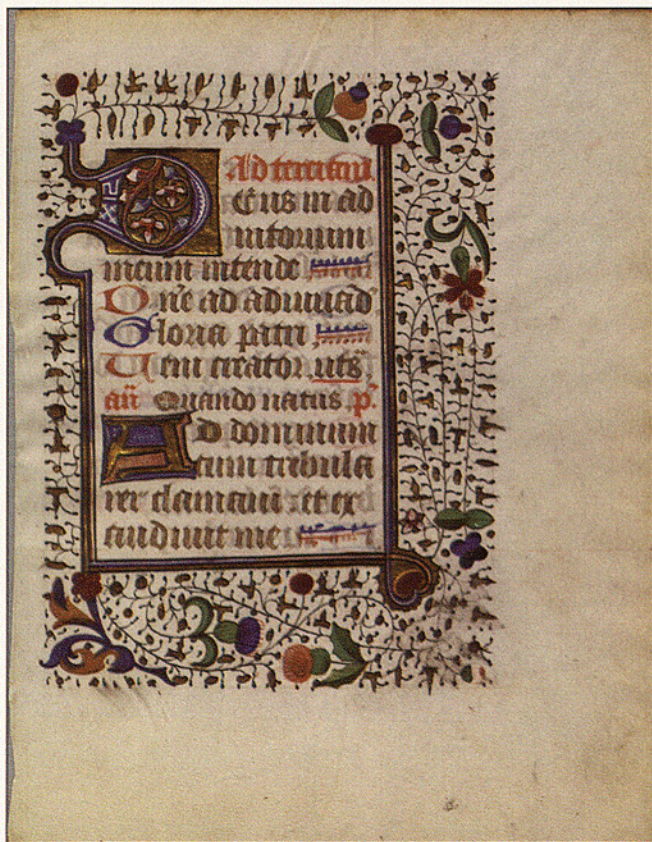 Ad terciam.
Deus in ad
iutorium
meum intende
Dñe ad adiuuād
Gloria patri
Ueni creator. uts̄
añ Quando natus. p̄.
AD dominum
cum tribula
rer clamaui: et ex
audiuit me